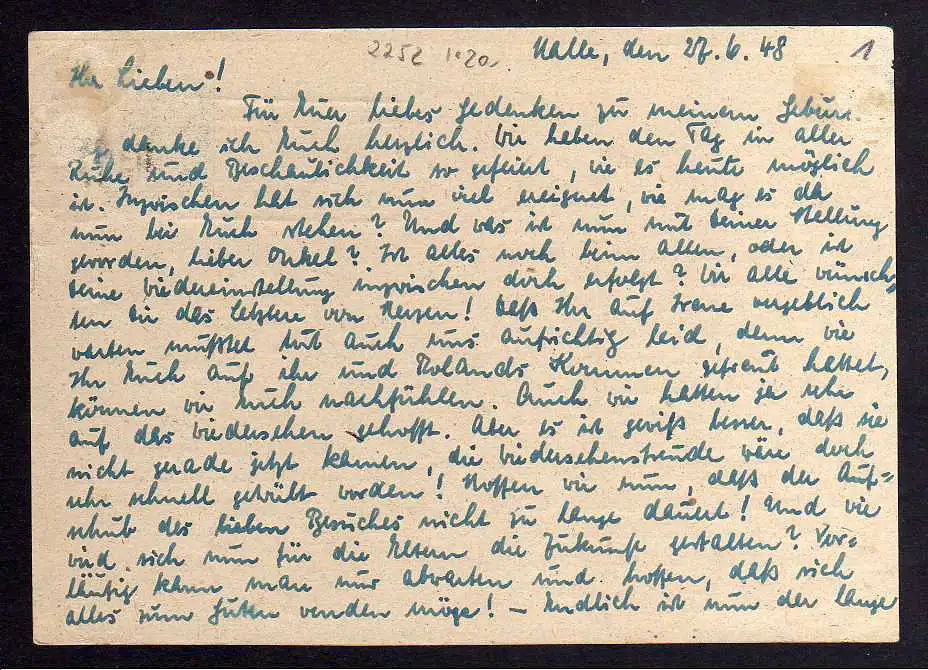 2252 1.20.
Halle, den 27.6.48
1
Ihr Lieben!
Für Euer liebes Gedenken zu meinem Geburts-
danke ich Euch herzlich. Wir haben den Tag in aller
Ruhe und Beschaulichkeit so gefeiert, wie es heute möglich
ist. Inzwischen hat sich nun viel ereignet, wie mag es da
nun bei Euch stehen? Und was ist nun mit Deiner Stellung
geworden, lieber Onkel? Ist alles noch beim alten, oder ist
Deine Wiedereinstellung inzwischen doch erfolgt? Wir alle wünsch-
ten Dir das Letztere von Herzen! Daß Ihr auf Irene vergeblich
warten mußtet tut auch uns aufrichtig leid, denn wie
Ihr Euch auf ihr und Rolands Kommen gefreut hattet,
können wir Euch nachfühlen. Auch wir hatten ja sehr
auf das Wiedersehen gehofft. Aber es ist gewiß besser, daß sie
nicht gerade jetzt kamen, die Wiedersehensfreude wäre doch
sehr schnell getrübt worden! Hoffen wir nun, daß der Auf=
schub des lieben Besuches nicht zu lange dauert! Und wie
wird sich nun für die Eltern die Zukunft gestalten? Vor=
läufig kann man nur abwarten und hoffen, daß sich
alles zum Guten wenden möge! – Endlich ist nun der lange